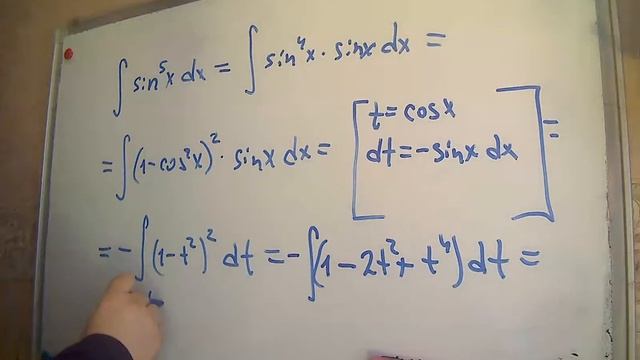 ∫ sin⁵x dx = ∫ sin⁴x · sinx dx =
= ∫ (1-cos²x)² · sinx dx = [t = cosx
dt = -sinx dx] =
= - ∫ (1-t²)² dt = - ∫ (1 - 2t² + t⁴) dt =